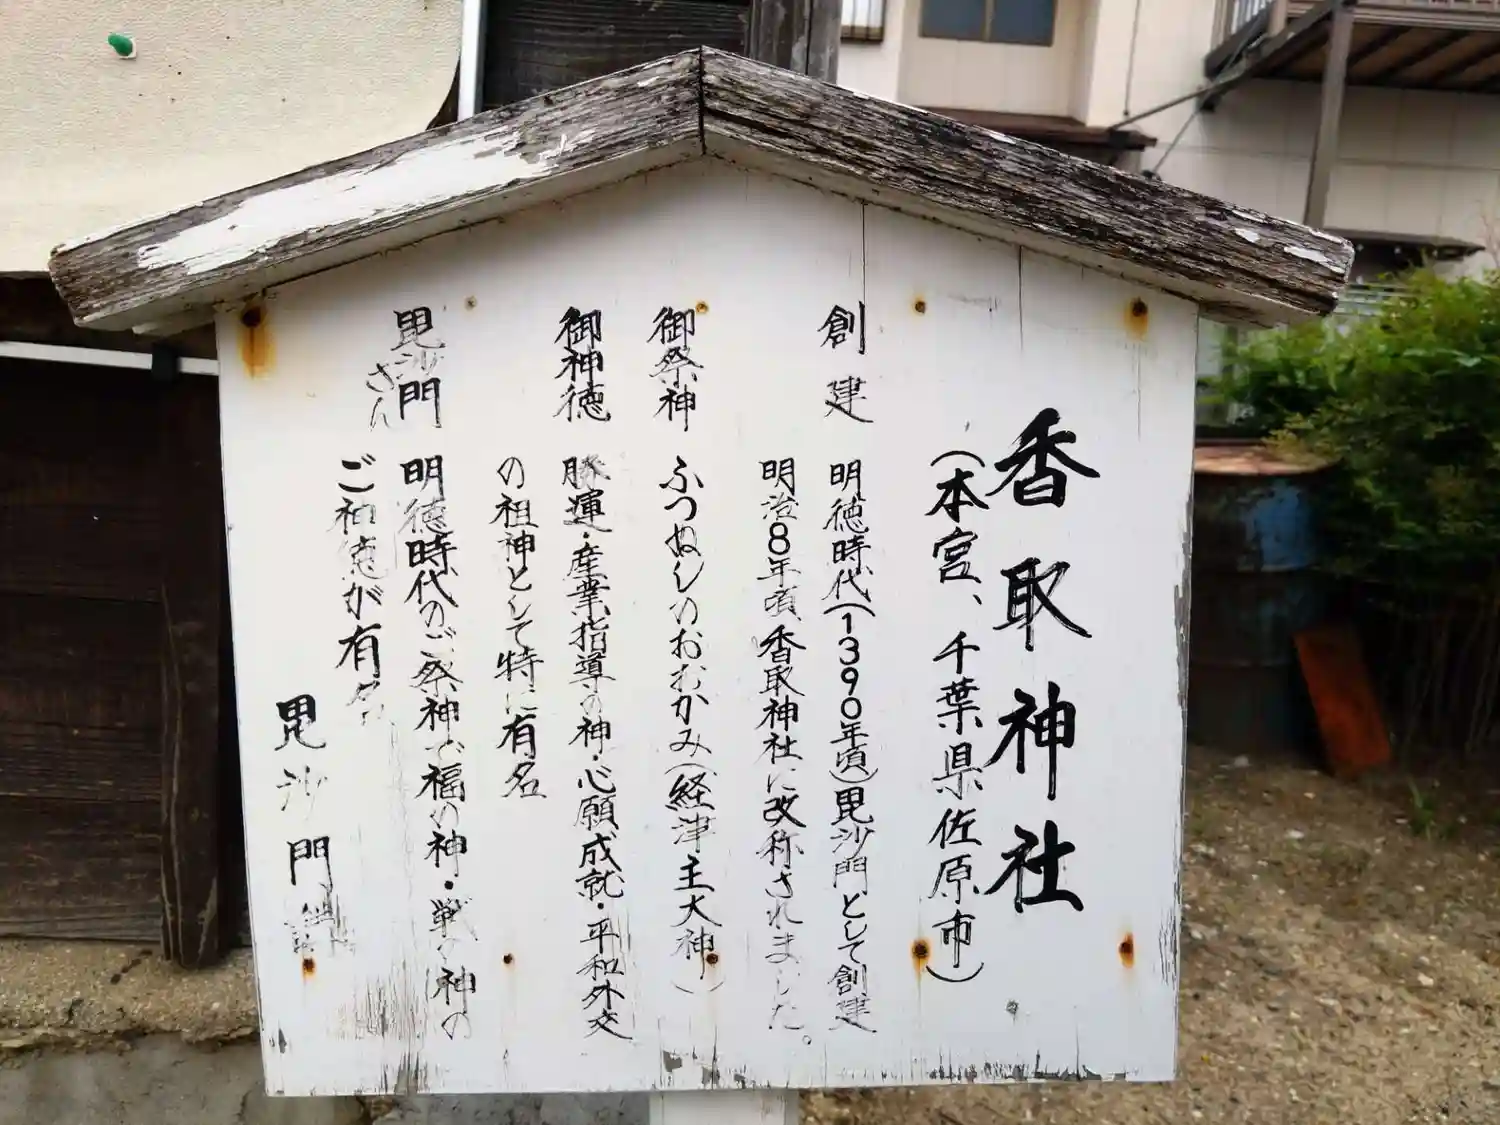 香取神社
(本宮、千葉県佐原市)
創建 明徳時代(1390年頃)毘沙門として創建
明治8年頃香取神社に改称されました。
御祭神 ふつぬしのおおむかみ(経津主大神)
御神徳 勝運・産業指導の神・心願成就・平和外交
の祖神として特に有名
毘沙門さん 明徳時代のご祭神で福の神・戦の神の
ご神徳が有名
毘沙門